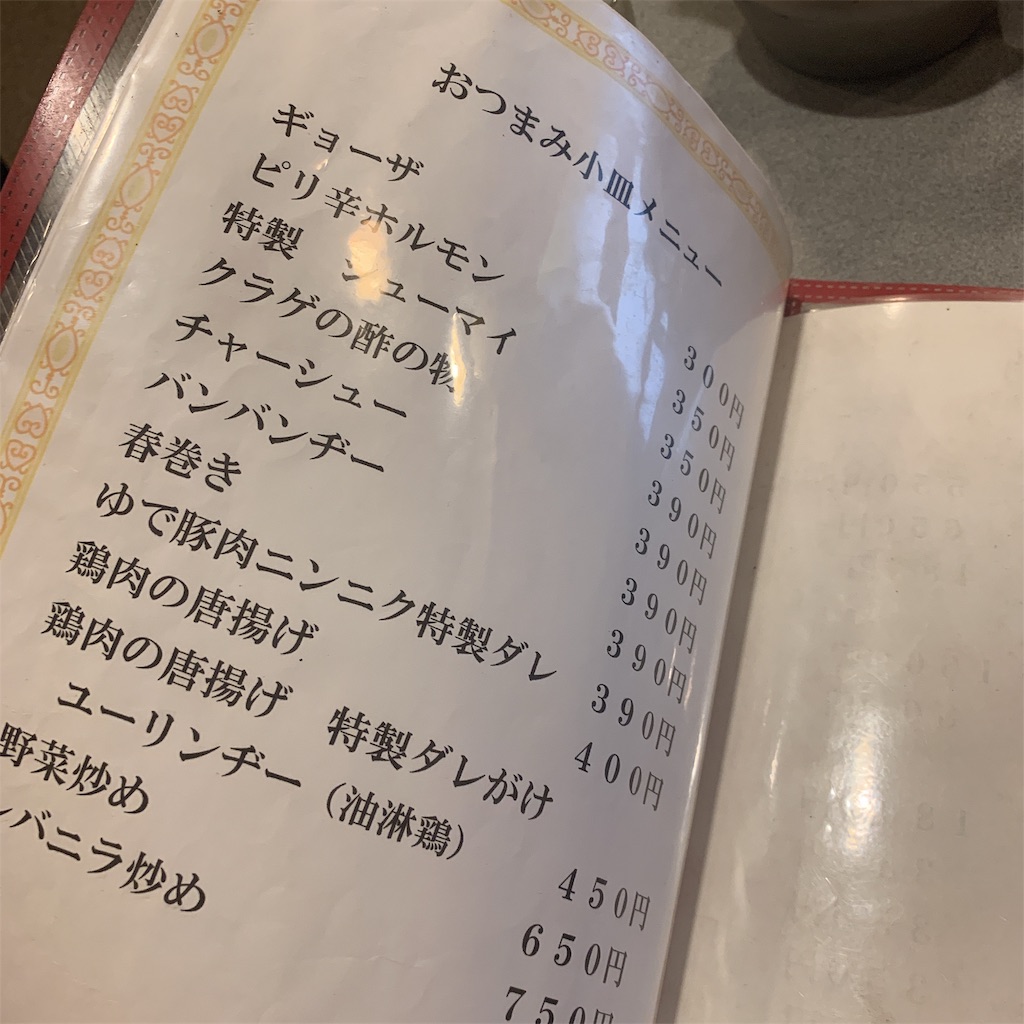 おつまみ小皿メニュー
ギョーザ 300円
ピリ辛ホルモン 350円
特製 シューマイ 350円
クラゲの酢の物 390円
チャーシュー 390円
バンバンヂー 390円
春巻き 390円
ゆで豚肉ニンニク特製ダレ 390円
鶏肉の唐揚げ 400円
鶏肉の唐揚げ 特製ダレがけ
ユーリンヂー（油淋鶏） 450円
野菜炒め 650円
レバニラ炒め 750円